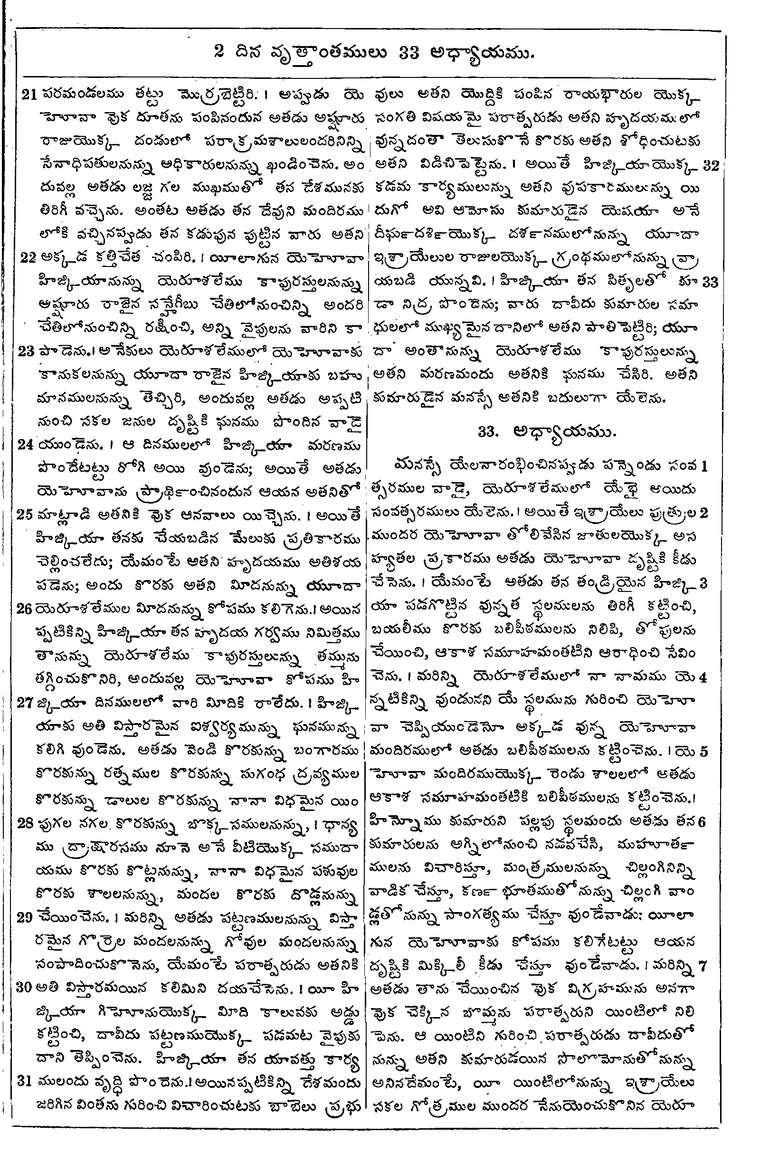 2 దిన వృత్తాంతములు 33 అధ్యాయము.
21 పరమండలము తట్టు మొర్రబెట్టిరి. । అప్పుడు యె
హెూవా వొక దూతను పంపినందున అతడు అష్షూరు
రాజుయొక్క దండులో పరాక్రమశాలులందరినిన్ని
సేనాధిపతులనున్ను అధికారులనున్ను ఖండించెను. అం
దువల్ల అతడు లజ్జ గల ముఖముతో తన దేశమునకు
తిరిగీ వచ్చెను. అంతట అతడు తన దేవుని మందిరము
లోకి వచ్చినప్పుడు తన కడుపున పుట్టిన వారు అతని
22 అక్కడ కత్తిచేత చంపిరి. । యీలాగున యెహెూవా
హిజ్కియానున్ను యెరూశలేము కాపురస్తులనున్ను
అష్షూరు రాజైన సన్హేరీబు చేతిలోనుంచిన్ని అందరి
చేతిలోనుంచిన్ని రక్షించి, అన్ని వైపులను వారిని కా
23 పాడెను. । అనేకులు యెరూశలేములో యెహెూవాకు
కానుకలనున్ను యూదా రాజైన హిజ్కియాకు బహు
మానములనున్ను తెచ్చిరి, అందువల్ల అతడు అప్పటి
నుంచి సకల జనుల దృష్టికి ఘనము పొందిన వాడై
24 యుండెను. । ఆ దినములలో హిజ్కియా మరణము
పొందేటట్టు రోగి అయి వుండెను; అయితే అతడు
యెహెూవాను ప్రార్థించినందున ఆయన అతనితో
25 మాట్లాడి అతనికి వొక ఆనవాలు యిచ్చెను. । అయితే
హిజ్కియా తనకు చేయబడిన మేలుకు ప్రతికారము
చెల్లించలేదు; యేమంటే ఆతని హృదయము అతిశయ
పడెను; అందు కొరకు అతని మీదనున్ను యూదా
26 యెరూశలేముల మీదనున్ను కోపము కలిగెను. । అయిన
ప్పటికిన్ని హిజ్కియా తన హృదయ గర్వము నిమిత్తము
తానున్ను యెరూశలేము కాపురస్తులున్ను తమ్మును
తగ్గించుకొనిరి, అందువల్ల యెహెూవా కోపము హి
27 జ్కియా దినములలో వారి మీదికి రాలేదు. । హిజ్కి
యాకు అతి విస్తారమైన ఐశ్వర్యమున్ను ఘనమున్ను
కలిగి వుండెను. అతడు వెండి కొరకున్ను బంగారము
కొరకున్ను రత్నముల కొరకున్ను సుగంధ ద్రవ్యముల
కొరకున్ను డాలుల కొరకున్ను నానా విధమైన యిం
28 పుగల నగల కొరకున్ను బొక్కసములనున్ను, । ధాన్య
ము ద్రాక్షారసము నూనె అనే వీటియొక్క సముదా
యము కొరకు కొట్లనున్ను, నానా విధమైన పశువుల
కొరకు శాలలనున్ను, మందల కొరకు దొడ్లనున్ను
29 చేయించెను. । మరిన్ని అతడు పట్టణములనున్ను విస్తా
రమైన గొర్రెల మందలనున్ను గోవుల మందలనున్ను
సంపాదించుకొనెను, యేమంటే పరాత్పరుడు అతనికి
30 అతి విస్తారమయిన కలిమిని దయచేసెను. । యీ హి
జ్కియా గిహెూనుయొక్క మీది కాలువకు అడ్డు
కట్టించి, దావీదు పట్టణముయొక్క పడమట వైపుకు
దాని తెప్పించెను. హిజ్కియా తన యావత్తు కార్య
31 ములందు వృద్ధి పొందెను. । అయినప్పటికిన్ని దేశమందు
జరిగిన వింతను గురించి విచారించుటకు బాబెలు ప్రభు
వులు అతని యొద్దికి పంపిన రాయభారుల యొక్క
సంగతి విషయమై పరాత్పరుడు అతని హృదయములో
వున్నదంతా తెలుసుకొనే కొరకు అతని శోధించుటకు
అతని విడిచిపెట్టెను. । అయితే హిజ్కియాయొక్క 32
కడమ కార్యములున్ను అతని వుపకారములున్ను యి
దుగో అవి ఆమోసు కుమారుడైన యెషయా అనే
దీర్ఘదర్శియొక్క దర్శనములోనున్ను యూదా
ఇశ్రాయేలుల రాజులయొక్క గ్రంథములోనున్ను వ్రా
యబడి యున్నవి. । హిజ్కియా తన పితృలతో కూ 33
డా నిద్ర పొందెను; వారు దావీదు కుమారుల సమా
ధులలో ముఖ్యమైన దానిలో అతని పాతిపెట్టిరి; యూ
దా అంతానున్ను యెరూశలేము కాపురస్తులున్ను
అతని మరణమందు అతనికి ఘనము చేసిరి. అతని
కుమారుడైన మనస్సే అతనికి బదులుగా యేలెను.
33. అధ్యాయము.
మనస్సే యేలనారంభించినప్పుడు పన్నెండు సంవ 1
త్సరముల వాడై, యెరూశలేములో యేభై అయిదు
సంవత్సరములు యేలెను. । అయితే ఇశ్రాయేలు పుత్రుల 2
ముందర యెహెూవా తోలివేసిన జాతులయొక్క అస
హ్యతల ప్రకారము అతడు యెహెూవా దృష్టికి కీడు
చేసెను. । యేమంటే అతడు తన తండ్రియైన హిజ్కి 3
యా పడగొట్టిన వున్నత స్థలములను తిరిగీ కట్టించి,
బయలీము కొరకు బలిపీఠములను నిలిపి, తోపులను
చేయించి, ఆకాశ సమూహమంతటిని ఆరాధించి సేవిం
చెను. । మరిన్ని యెరూశలేములో నా నామము యె 4
న్నటికిన్ని వుండునని యే స్థలమును గురించి యెహెూ
వా చెప్పియుండెనో అక్కడ వున్న యెహెూవా
మందిరములో అతడు బలిపీఠములను కట్టించెను. । యె 5
హెూవా మందిరముయొక్క రెండు శాలలలో అతడు
ఆకాశ సమూహమంతటికి బలిపీఠములను కట్టించెను. ।
హిన్నోము కుమారుని పల్లపు స్థలమందు అతడు తన 6
కుమారులను అగ్నిలోనుంచి నడవచేసి, ముహూర్త
ములను విచారిస్తూ, మంత్రములనున్ను చిల్లంగినిన్ని
వాడిక చేస్తూ, కర్ణ భూతముతోనున్ను చిల్లంగి వాం
డ్లతోనున్ను సాంగత్యము చేస్తూ వుండేవాడు: యీలా
గున యెహెూవాకు కోపము కలిగేటట్టు ఆయన
దృష్టికి మిక్కిలీ కీడు చేస్తూ వుండేవాడు. । మరిన్ని 7
అతడు తాను చేయించిన వొక విగ్రహమును అనగా
వొక చెక్కిన బొమ్మను పరాత్పరుని యింటిలో నిలి
పెను. ఆ యింటిని గురించి పరాత్పరుడు దావీదుతో
నున్ను అతని కుమారుడయిన సాలొమోనుతోనున్ను
అనినదేమంటే, యీ యింటిలోనున్ను ఇశ్రాయేలు
సకల గోత్రముల ముందర నేనుయెంచుకొనిన యెరూ